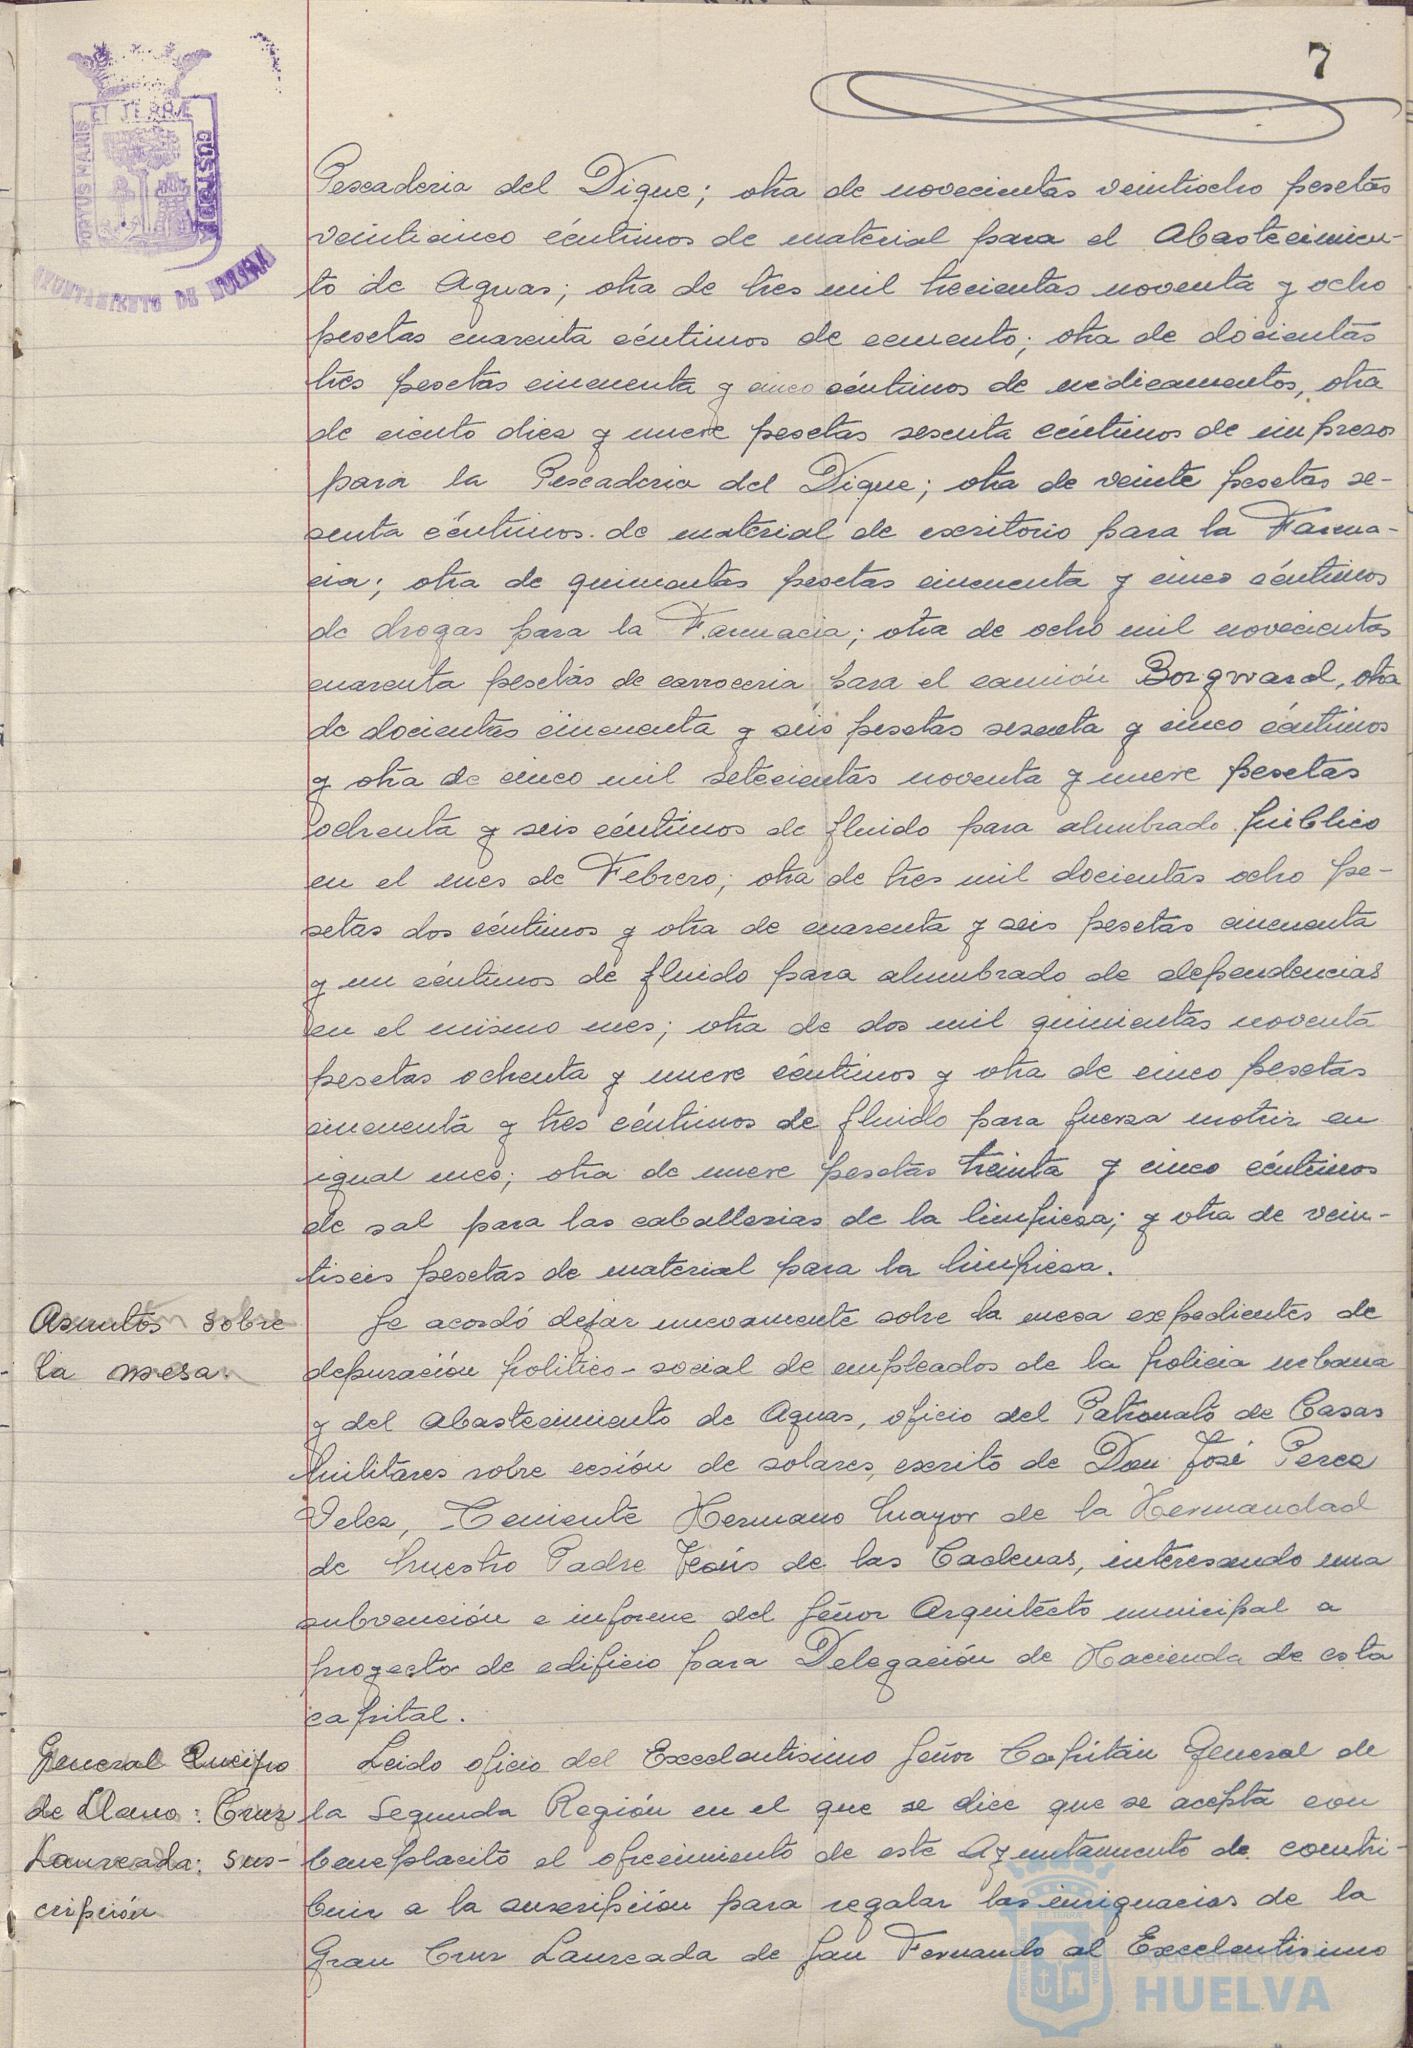 7
PORTUS MARIS
ET TERRAE
CUSTODIA
AYUNTAMIENTO DE HUELVA
Pescaderia del Dique; otra de novecientas veintiocho pesetas
veinticinco céntimos de material para el Abastecimien-
to de Aguas; otra de tres mil trecientas noventa y ocho
pesetas cuarenta céntimos de cemento; otra de docientas
tres pesetas cincuenta y cinco céntimos de medicamentos, otra
de ciento diez y nueve pesetas sesenta céntimos de impresos
para la Pescaderia del Dique; otra de veinte pesetas se-
senta céntimos de material de escritorio para la Farma-
cia; otra de quinientas pesetas cincuenta y cinco céntimos
de drogas para la Farmacia; otra de ocho mil novecientas
cuarenta pesetas de carroceria para el camión Borgward, otra
de docientas cincuenta y seis pesetas sesenta y cinco céntimos
y otra de cinco mil setecientas noventa y nueve pesetas
ochenta y seis céntimos de fluido para alumbrado público
en el mes de Febrero; otra de tres mil docientas ocho pe-
setas dos céntimos y otra de cuarenta y seis pesetas cincuenta
y un céntimos de fluido para alumbrado de dependencias
en el mismo mes; otra de dos mil quinientas noventa
pesetas ochenta y nueve céntimos y otra de cinco pesetas
cincuenta y tres céntimos de fluido para fuerza motriz en
igual mes; otra de nueve pesetas treinta y cinco céntimos
de sal para las caballerias de la limpieza; y otra de vein-
tiseis pesetas de material para la limpieza.
Asuntos sobre
la mesa.
Se acordó dejar nuevamente sobre la mesa expedientes de
depuración politico-social de empleados de la policia urbana
y del Abastecimiento de Aguas, oficio del Patronato de Casas
Militares sobre cesión de solares, escrito de Don José Perea
Velez, Teniente Hermano Mayor de la Hermandad
de Nuestro Padre Jesús de las Cadenas, interesando una
subvención e informe del Señor Arquitecto municipal a
proyecto de edificio para Delegación de Hacienda de esta
capital.
General Queipo
de Llano: Cruz
Laureada: sus-
cripción
Leido oficio del Excelentisimo Señor Capitán General de
la Segunda Región en el que se dice que se acepta con
beneplacito el ofrecimiento de este Ayuntamiento de contri-
buir a la suscripción para regalar las insignacias de la
Gran Cruz Laureada de San Fernando al Excelentisimo
Ayuntamiento de
HUELVA